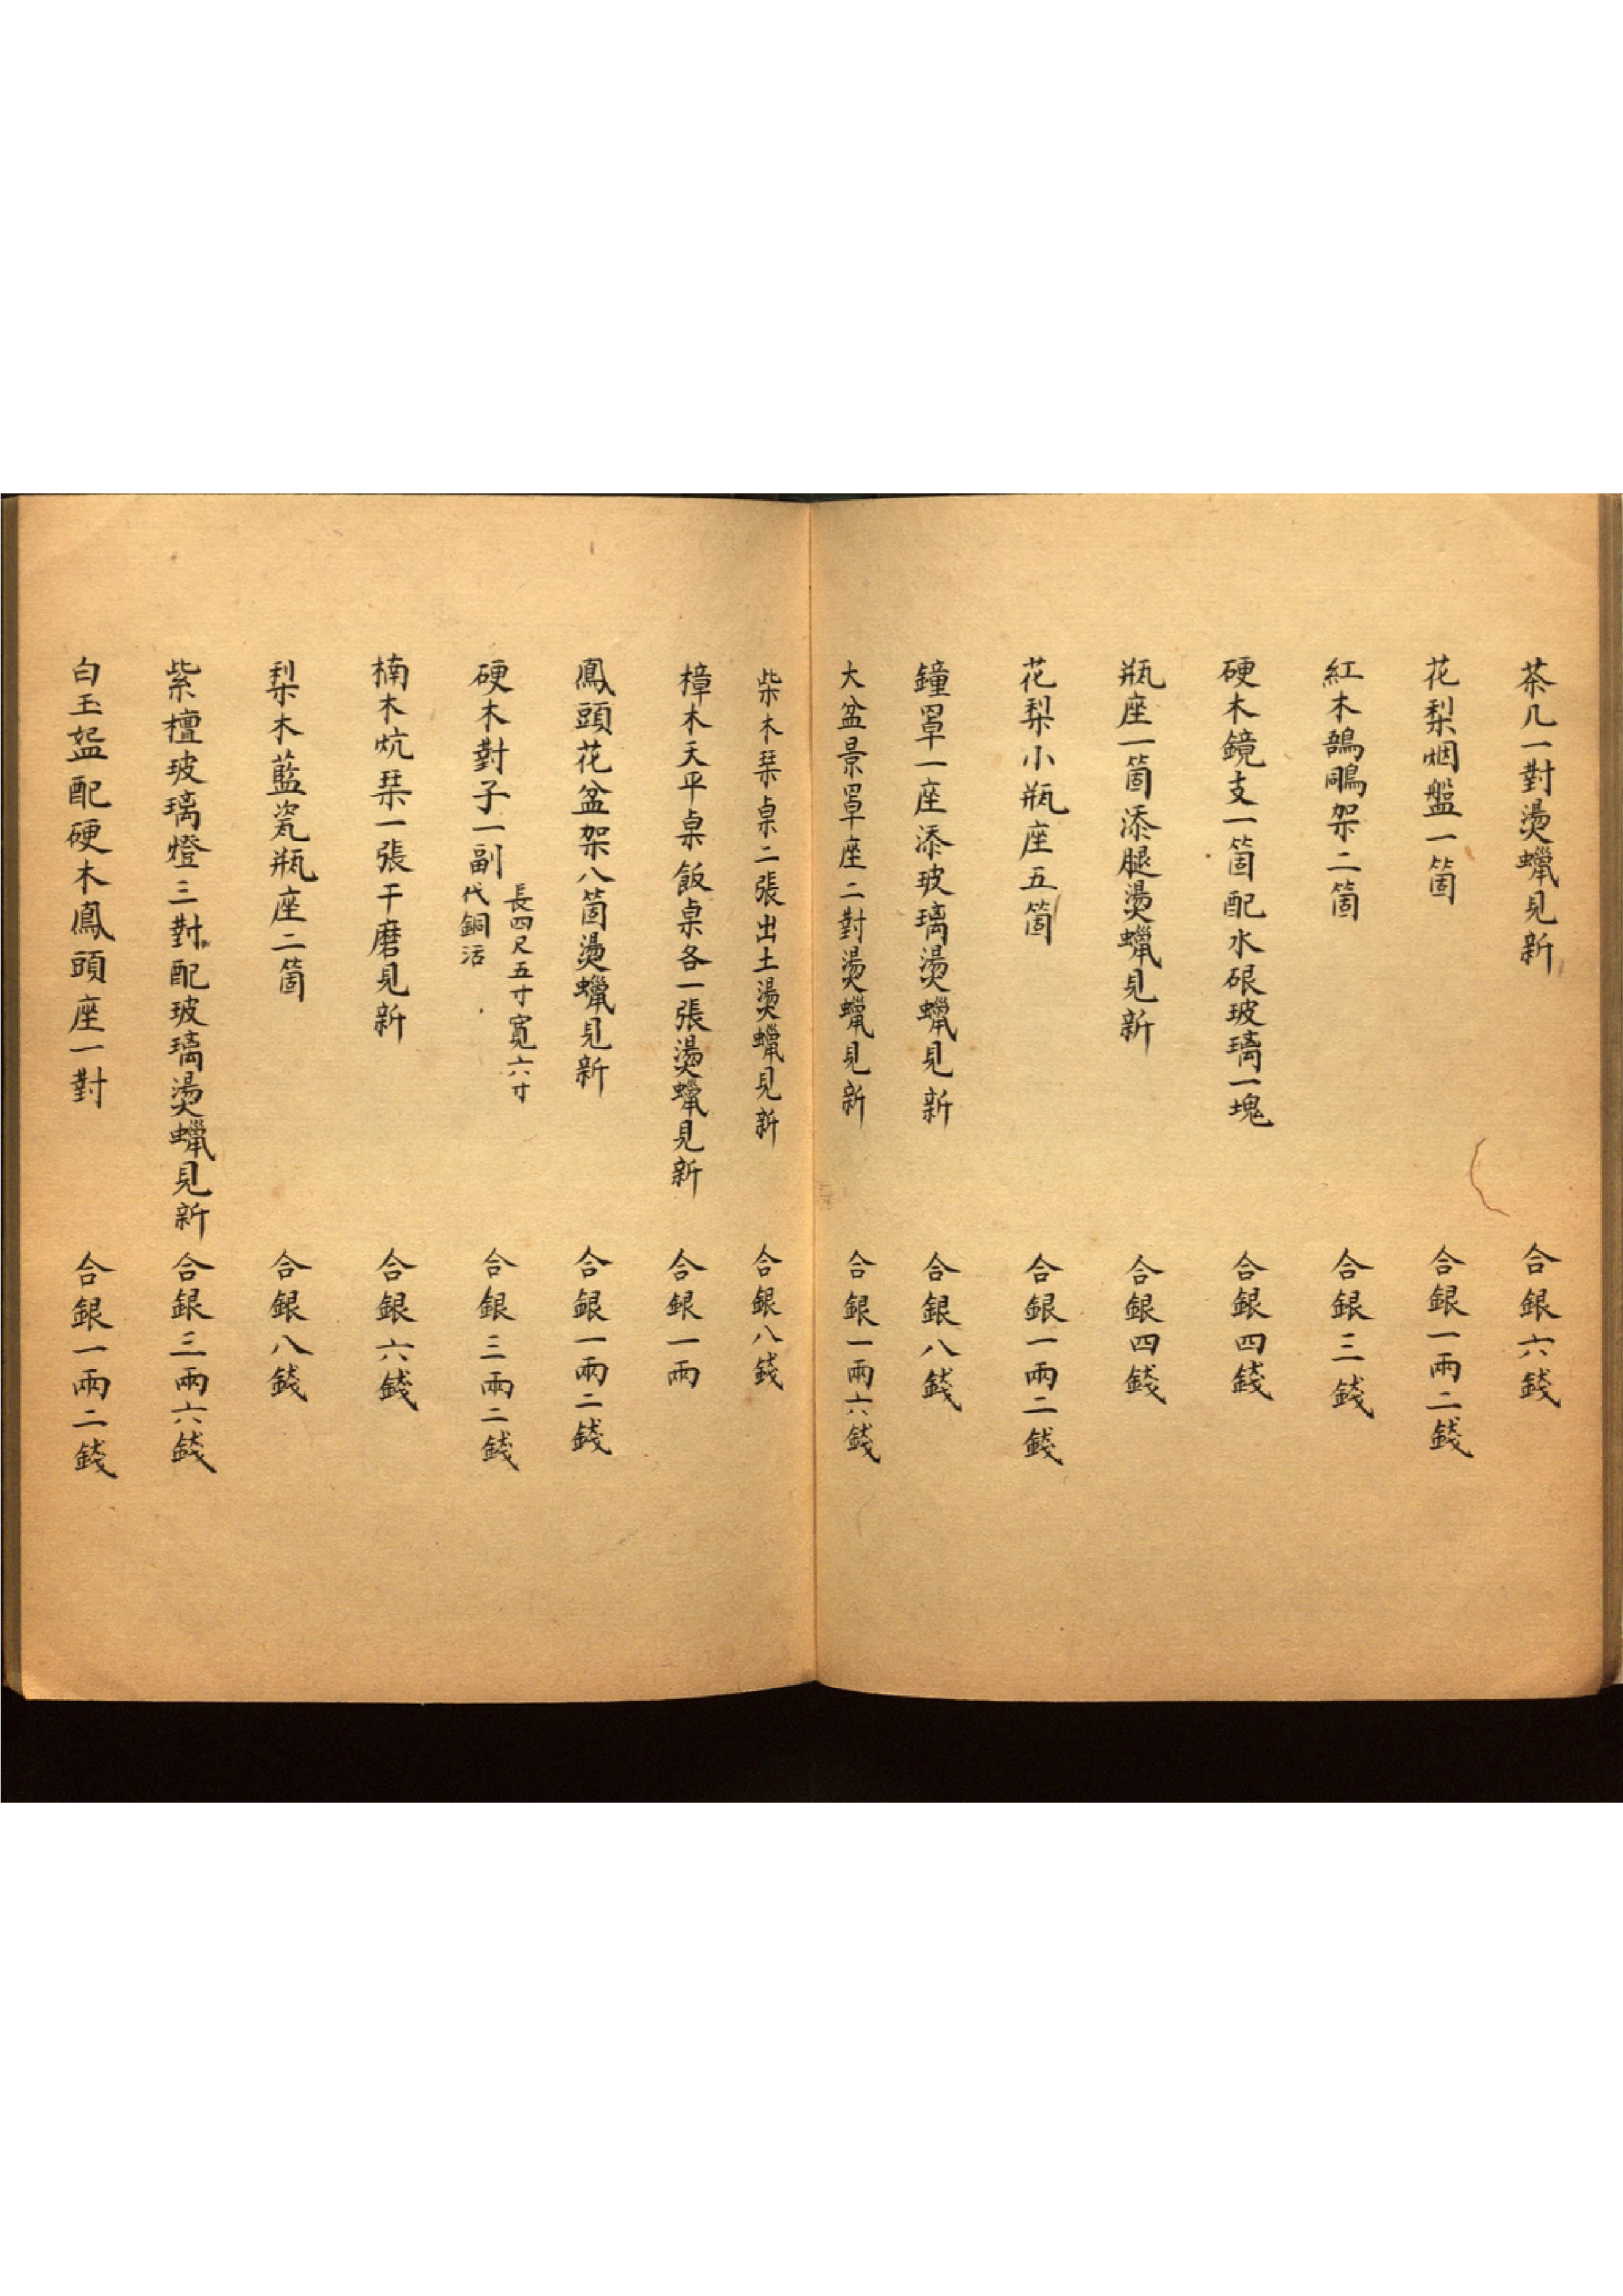 茶几一對燙蠟見新 合銀六錢
花梨烟盤一箇 合銀一兩二錢
紅木鵠鵰架二箇 合銀三錢
硬木鏡支一箇配水硍玻璃一塊 合銀四錢
瓶座一箇添腿燙蠟見新 合銀四錢
花梨小瓶座五箇 合銀一兩二錢
鐘罩一座添玻璃燙蠟見新 合銀八錢
大盆景罩座二對燙蠟見新 合銀一兩六錢
柴木琹桌二張出土燙蠟見新 合銀八錢
樟木天平桌飯桌各一張燙蠟見新 合銀一兩
鳳頭花盆架八箇燙蠟見新 合銀一兩二錢
硬木對子一副 長四尺五寸寬六寸 代銅活 合銀三兩二錢
楠木炕琹一張干磨見新 合銀六錢
梨木藍瓷瓶座二箇 合銀八錢
紫檀玻璃燈三對配玻璃燙蠟見新 合銀三兩六錢
白玉盌配硬木鳳頭座一對 合銀一兩二錢